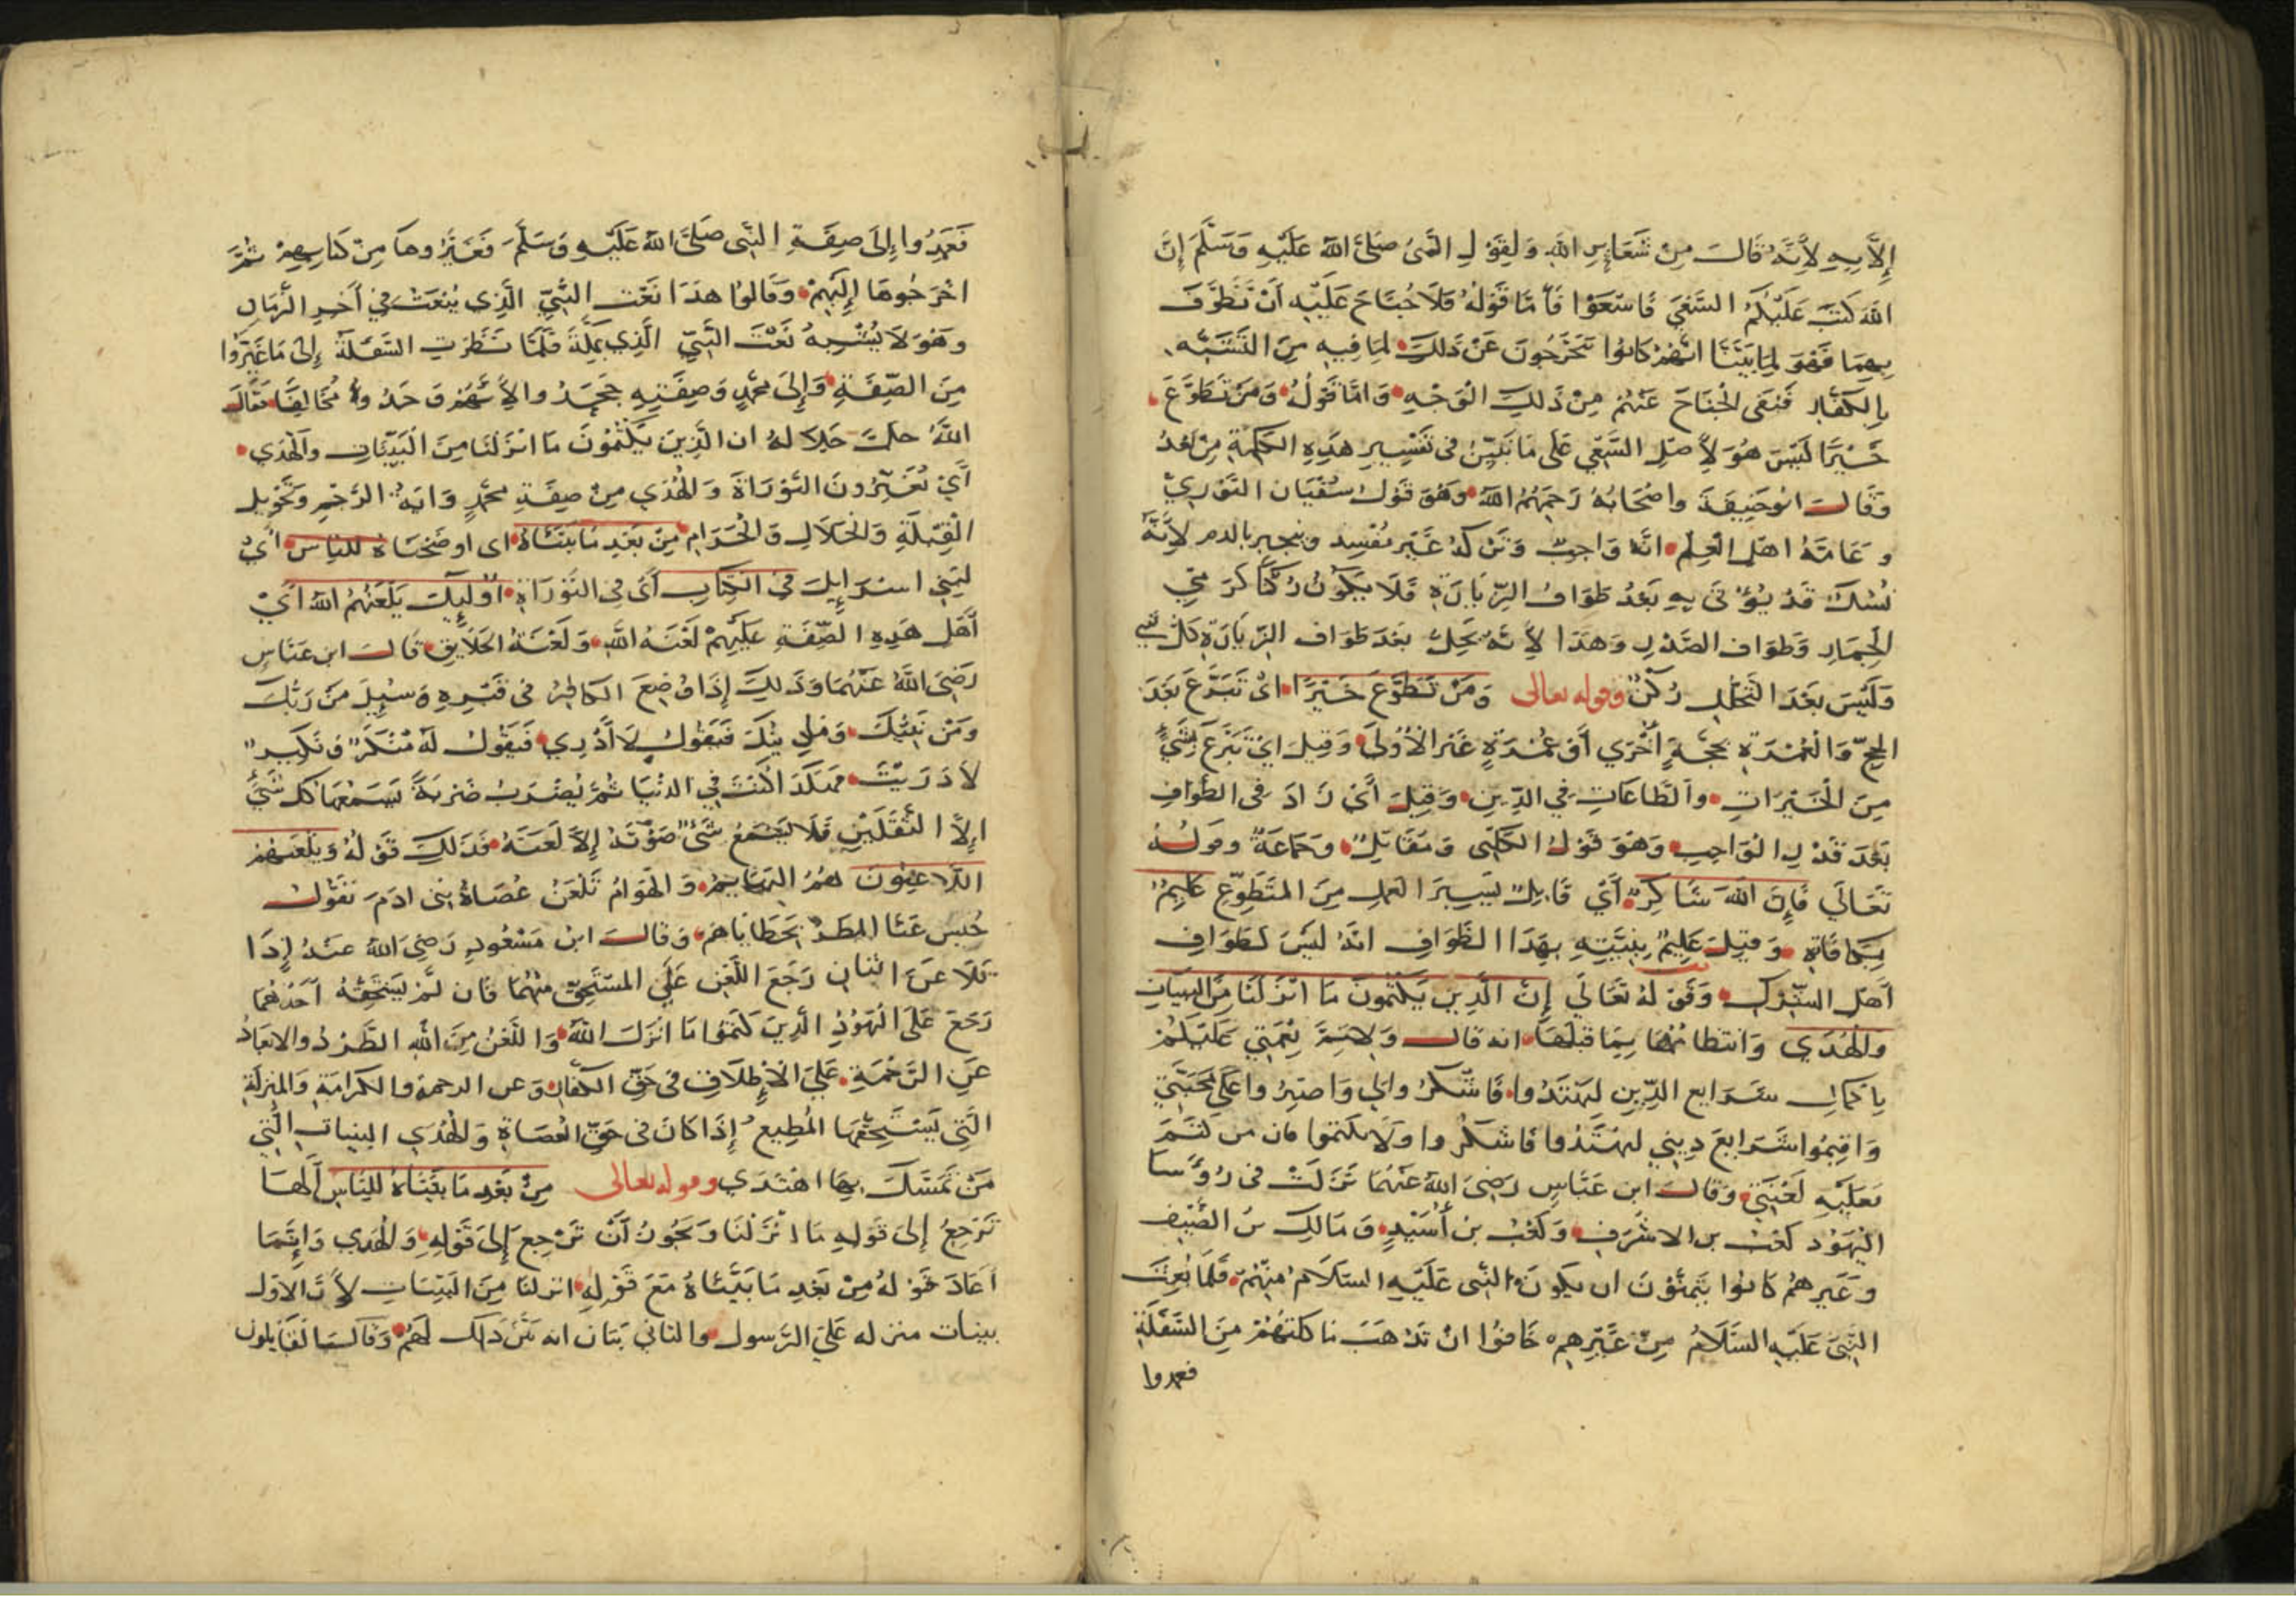 إِلَّا بِهِ لِأَنَّهُ قَالَ مِنْ شَعَايِرِ اللهِ وَلِقَوْلِ النَّبِيِّ صَلَّى اللهُ عَلَيْهِ وَسَلَّمَ إِنَّ
اللهَ كَتَبَ عَلَيْكُمُ السَّعْيَ فَاسْعَوْا فَأَمَّا قَوْلُهُ فَلَا جُنَاحَ عَلَيْهِ أَنْ يَطَّوَّفَ
بِهِمَا فَهُوَ لِمَا بَيَّنَّا انَّهُمْ كَانُوا يَتَحَرَّجُونَ عَنْ ذَلِكَ لِمَا فِيهِ مِنَ التَّشَبُّهِ
بِالْكُفَّارِ فَنَفَى الْجُنَاحَ عَنْهُمْ مِنْ ذَلِكَ الْوَجْهِ وَامَّا قَوْلُهُ وَمَنْ تَطَوَّعَ
خَيْرًا لَيْسَ هُوَ لِأَصْلِ السَّعْيِ عَلَى مَا نُبَيِّنُ فِي تَفْسِيرِ هَذِهِ الْكَلِمَةِ مِنْ بَعْدُ
وَقَالَ ابُو حَنِيفَةَ وَاصْحَابُهُ رَحِمَهُمُ اللهُ وَهُوَ قَوْلُ سُفْيَانَ الثَّوْرِيِّ
وَعَامَّةُ اهْلِ الْعِلْمِ انَّهُ وَاجِبٌ وَتَرْكُهُ غَيْرُ مُفْسِدٍ وينجبر بالدم لِأَنَّهُ
نُسُكٌ قَدْ يُؤْتَى بِهِ بَعْدَ طَوَافِ الزِّيَارَةِ فَلَا يَكُونُ رُكْنًا كَرَمْيِ
الْجِمَارِ وَطَوَافِ الصَّدْرِ وَهَذَا لِأَنَّهُ يَحِلُّ بَعْدَ طَوَافِ الزِّيَارَةِ كُلُّ شَيْءٍ
وَلَيْسَ بَعْدَ التَّحَلُّلِ رُكْنٌ وقوله تعالى وَمَنْ تَطَوَّعَ خَيْرًا ايْ تَبَرَّعَ بَعْدَ
الْحَجِّ وَالْعُمْرَةِ بِحَجَّةٍ أُخْرَى أَوْ عُمْرَةٍ غَيْرِ الْأُولَى وَقِيلَ ايْ تَبَرَّعَ بِشَيْءٍ
مِنَ الْخَيْرَاتِ وَالطَّاعَاتِ فِي الدِّينِ وَقِيلَ أَيْ زَادَ فِي الطَّوَافِ
بَعْدَ قَدْرِ الْوَاجِبِ وَهُوَ قَوْلُ الْكَلْبِي وَمُقَاتِلٍ وَجَمَاعَةٍ وَقولُهُ
تَعَالَى فَإِنَّ اللهَ شَاكِرٌ أَيْ قَابِلٌ لِيَسِيرِ الْعَمَلِ مِنَ الْمُتَطَوِّعِ عَلِيمٌ
بِمُكَافَاتِهِ وَقِيلَ عَلِيمٌ بِنِيَّتِهِ بِهَذَا الطَّوَافِ انَّهُ لَيْسَ كَطَوَافِ
أَهْلِ الشِّرْكِ وَقَوْلُهُ تَعَالَى إِنَّ الَّذِينَ يَكْتُمُونَ مَا انْزَلْنَا مِنَ الْبَيِّنَاتِ
وَالْهُدَى وَانتظامُهَا بِمَا قَبْلَهَا انه قال وَلِاتِمَّ نِعْمَتِي عَلَيْكُمْ
بِاكمال شَرَايع الدِّينِ لِتَهْتَدُوا فَاشْكُرُوا لِي وَاصْبِرُوا عَلَى مِحْنَتِي
وَاقِيمُوا شَرَايعَ دِينِي لتهْتَدُوا فَاشْكُرُوا وَلَا تكتموا فان من كَتَمَ
فَعَلَيْهِ لَعْنَتِي وَقَالَ ابن عَبَّاسٍ رَضِيَ اللهُ عَنْهُمَا نَزَلَتْ فِي رُؤَسَا
الْيَهُودِ كَعْبِ بن الاشْرَفِ وَكَعْبِ بن أُسَيْدٍ وَمَالِكِ بنُ الضَّيْفِ
وَغَيرِهِمْ كَانُوا يَتَمَنَّوْنَ ان يكونَ النَّبِي عَلَيْهِ السَّلَامُ مِنْهُمْ فَلَمَّا بُعِثَ
النَّبِيُّ عَلَيْهِ السَّلَامُ مِنْ غَيْرِهِمْ خَافُوا انْ تَذْهَبَ مَاكَلَتُهُمْ مِنَ السَّفَلَةِ
فعمدوا
فَعَمَدُوا إِلَى صِفَةِ النَّبِي صَلَّى اللهُ عَلَيْهِ وَسَلَّمَ فَغَيَّرُوهَا مِنْ كِتَابِهِمْ ثُمَّ
اخْرَجُوهَا إِلَيْهِمْ وَقَالُوا هَذَا نَعْتُ النَّبِيِّ الَّذِي يُبْعَثُ فِي أَخِرِ الزَّمَانِ
وَهُوَ لَا يُشْبِهُ نَعْتَ النَّبِيِّ الَّذِي بِمَكَّةَ فَلَمَّا نَظَرَتِ السَّفَلَةُ إِلَى مَا غَيَّرُوا
مِنَ الصِّفَةِ وَإِلَى مُحَمَّدٍ وَصِفَتِهِ جَحَدُوا لِأَنَّهُمْ وَجَدُوهُ مُخَالِفًا فقَالَ
اللَّهُ جلَّ جَلَالُهُ ان الَّذِينَ يَكْتُمُونَ مَا انْزَلْنَا مِنَ الْبَيِّنَاتِ وَالْهُدَى
أَيْ يُغَيِّرُونَ التَّوْرَاةَ وَالْهُدَى مِنْ صِفَةِ مُحَمَّدٍ وَايَةُ الرَّجْمِ وَتَحْوِيلِ
الْقِبْلَةِ وَالْحَلَالِ وَالْحَرَامِ مِنْ بَعْدِ مَا بَيَّنَّاهُ اى اوضَحْنَاهُ لِلنَّاسِ أَيْ
لِبَنِي اسْرَايِلَ فِي الْكِتَابِ أَيْ فِي التَّوْرَاةِ أُولَيِكَ يَلْعَنُهُمُ اللهُ ايْ
أَهْلِ هَذِهِ الصِّفَةِ عَلَيْهِمْ لَعْنَةُ اللَّهِ وَلَعْنَةُ الخَلَايِقِ قَالَ ابن عَبَّاسٍ
رَضِيَ اللَّهُ عَنْهُمَا وَذَلِكَ إِذَا وُضِعَ الكافِرُ فِي قَبْرِهِ وَسُيِلَ مَنْ رَبُّكَ
وَمَنْ نَبِيُّكَ وَمَا دِينُكَ فَيَقُولُ لَا أَدْرِي فَيَقُولُ لَهُ مُنْكَرٌ وَنَكِيرٌ
لَا دَرَيْتَ هكَذَا كُنْتَ فِي الدُّنْيَا ثُمَّ يُضْرَبُ ضَرْبَةً يَسْمَعُهَا كل شَيْءٍ
إِلَّا الثَّقَلَيْنِ فَلَا يَسْمَعُ شَيْءٌ صَوْتَهُ إِلَّا لَعَنَهُ فَذَلِكَ قَوْلُهُ وَيَلْعَنُهُمُ
اللَّاعِنُونَ هُمُ الْبَهَايِمُ وَالْهَوَامُّ تَلْعَنُ عُصَاةُ بَنِي ادَمَ تَقُولُ
حُبِسَ عَنَّا المطَرُ بِخَطَايَاهُمْ وَقَالَ ابنُ مَسْعُودٍ رَضِيَ اللهُ عَنْهُ إِذَا
تَلَاعَنَ اثْنَانِ رَجَعَ اللَّعْنُ عَلَى الْمُسْتَحِقِّ مِنْهُمَا فَان لَمْ يَسْتَحِقُّهُ أَحَدُهُمَا
رَجَعَ عَلَى الْيَهُودِ الَّذِينَ كَتَمُوا مَا انْزَلَ اللهُ وَاللَّعْنُ مِنَ اللهِ الطَّرْدُ وَالابعَادُ
عَنِ الرَّحْمَةِ عَلَى الْإِطْلَاقِ فِي حَقِّ الْكُفَّارِ وَعن الرحمة والكَرَامَةِ وَالْمَنْزِلَةِ
الَّتِي يَسْتَحِقُّهَا الْمُطِيعُ إِذَا كَانَ فِي حَقِّ الْعُصَاةِ وَالْهُدَى البينات الَّتِي
مَنْ تَمَسَّكَ بِهَا اهْتَدَى وقوله تعالى مِنْ بَعْدِ مَا بَيَّنَّاهُ لِلنَّاسِ الهَا
تَرْجِعُ إِلَى قَوْلِهِ مَا انْزَلْنَا وَيَجُوزُ أَنْ تَرْجِعَ إِلَى قَوْلِهِ وَالْهُدَى وَإِنَّمَا
أَعَادَ قَوْلَهُ مِنْ بَعْدِ مَا بَيَّنَّاهُ مَعَ قَوْلِهِ انزلنا مِنَ الْبَيِّنَاتِ لِأَنَّ الاول
بينات منزله عَلَى الرَّسول والثاني بَيَان انه بَيَّنَ ذلك لَهُمْ وَقَالَ القَايلون